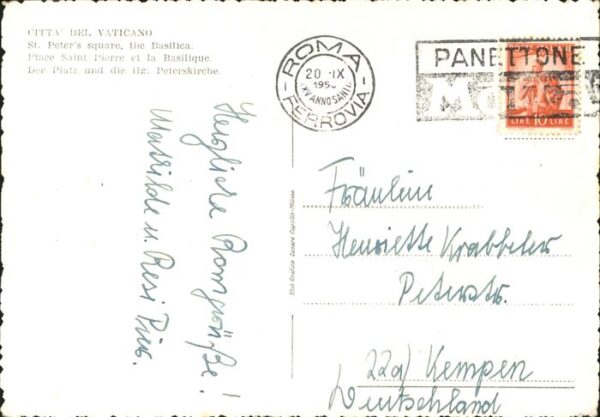 CITTA' DEL VATICANO
St. Peter's square, the Basilica.
Place Saint Pierre et la Basilique.
Der Platz und die Hg. Peterskirche
ROMA
FERROVIA
20 IX
1950
XXV ANNO SANTO
PANETTONE
MOTTA
LIRE 10 LIRE
Herzliche Romgrüße!
Mathilde u. Resi
Fräulein
Henriette Krabbeler
Peterstr.
22a) Kempen
Deutschland